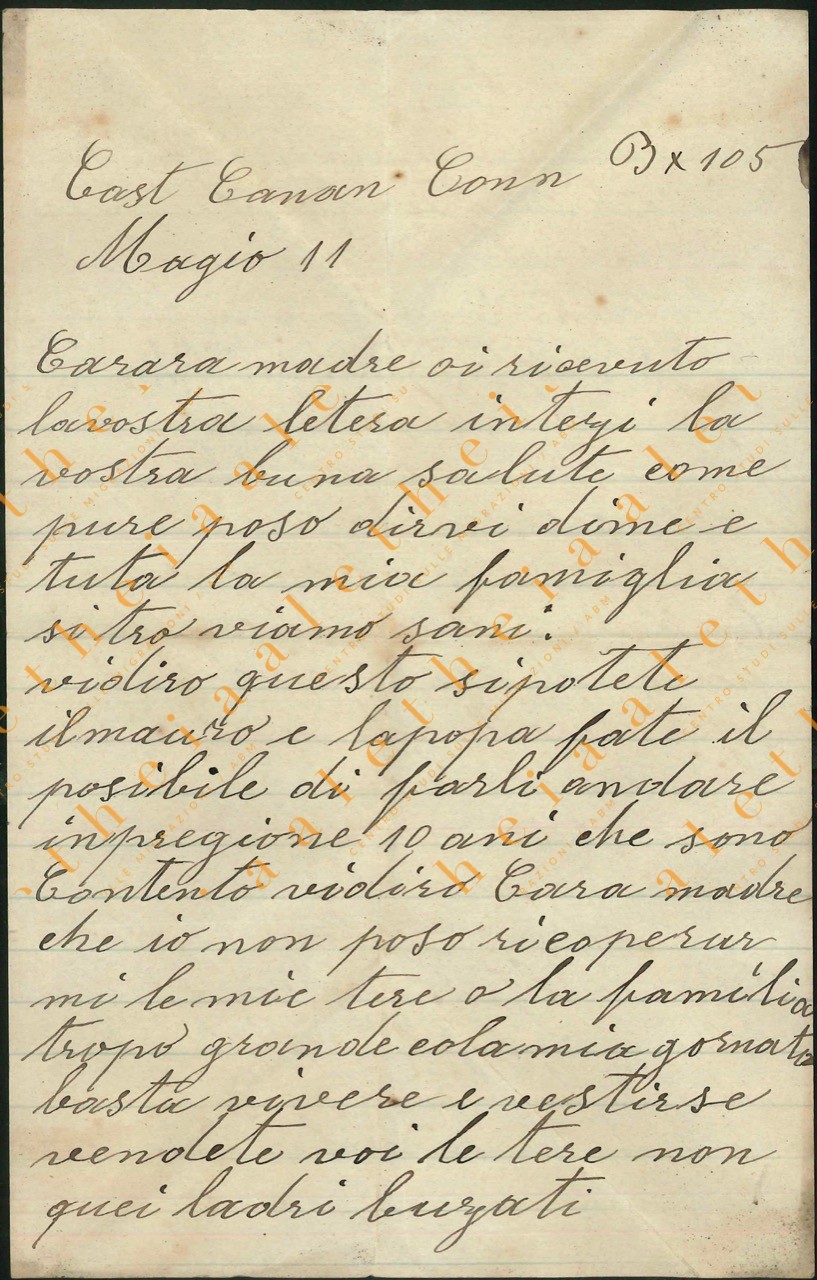 East Canan Conn Bx 105
Magio 11
Carara madre oi ricevuto
lavostra letera intezi la
vostra buna salute come
pure poso dirvi dime e
tuta la mia famiglia
si tro viamo sani.
vidiro questo sipotete
ilmauro e lapopa fate il
posibile di farli andare
inpregione 10 ani che sono
Contento vidiro Cara madre
che io non poso ricoperar
mi le mie tere o la familia
tropo grande cola mia gornata
basta vivere e vestirse
vendete voi le tere non
quei ladri buzati